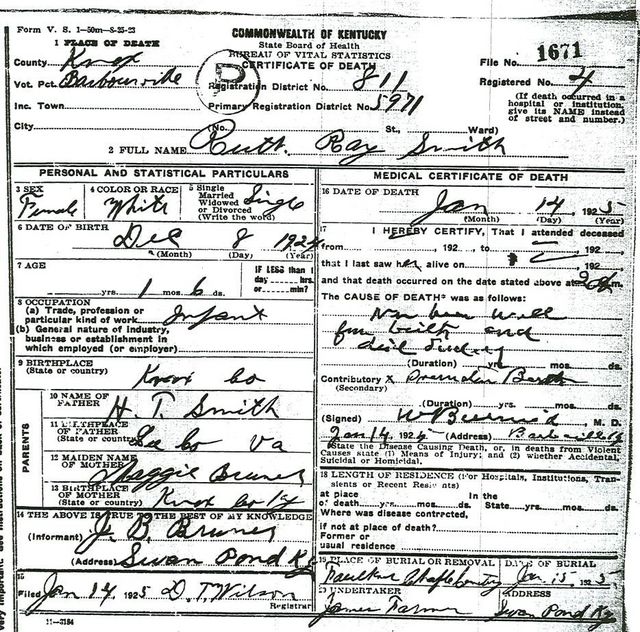 Form V. S. 1—50m—8-25-23
COMMONWEALTH OF KENTUCKY
State Board of Health
BUREAU OF VITAL STATISTICS
CERTIFICATE OF DEATH
1 PLACE OF DEATH
County Knox
Vot. Pct. Barbourville
Inc. Town
City
Registration District No. 811
Primary Registration District No. 5971
File No. 1671
Registered No. 4
(If death occurred in a
hospital or institution,
give its NAME instead
of street and number.)
(No. St., Ward)
2 FULL NAME Ruth Ray Smith
PERSONAL AND STATISTICAL PARTICULARS
3 SEX
Female
4 COLOR OR RACE
White
5 Single
Married
Widowed
or Divorced
(Write the word)
Single
6 DATE OF BIRTH
Dec 8 1924
(Month) (Day) (Year)
7 AGE
yrs. 1 mos. 6 ds.
IF LESS than 1
day hrs.
or min?
8 OCCUPATION
(a) Trade, profession or
particular kind of work Infant
(b) General nature of industry,
business or establishment in
which employed (or employer)
9 BIRTHPLACE
(State or country)
Knox Co
PARENTS
10 NAME OF
FATHER H. T. Smith
11 BIRTHPLACE
OF FATHER
(State or country) Lee Co Va
12 MAIDEN NAME
OF MOTHER Maggie Bruner
13 BIRTHPLACE
OF MOTHER
(State or country) Knox Co Ky
14 THE ABOVE IS TRUE TO THE BEST OF MY KNOWLEDGE
(Informant) J. B. Bruner
(Address) Swan Pond Ky
15
Filed Jan 14 1925 D. T. Wilson
Registrar
11—3184
MEDICAL CERTIFICATE OF DEATH
16 DATE OF DEATH
Jan 14, 1925
(Month) (Day) (Year)
17 I HEREBY CERTIFY, That I attended deceased
from , 192 , to , 192
that I last saw her alive on , 192
and that death occurred on the date stated above at m.
The CAUSE OF DEATH* was as follows:
(Duration) yrs. mos. ds.
Contributory Premature Birth
(Secondary)
(Duration) yrs. mos. ds.
(Signed) M. D.
Jan 14, 192 (Address)
*State the Disease Causing Death, or, in deaths from Violent
Causes state (1) Means of Injury; and (2) whether Accidental,
Suicidal or Homicidal.
18 LENGTH OF RESIDENCE (For Hospitals, Institutions, Transients
or Recent Residents)
at place
of death yrs. mos. ds. In the
State yrs. mos. ds.
Where was disease contracted,
if not at place of death?
Former or
usual residence
19 PLACE OF BURIAL OR REMOVAL
DATE OF BURIAL
Jan 15, 1925
20 UNDERTAKER
James Farmer
ADDRESS
Swan Pond Ky